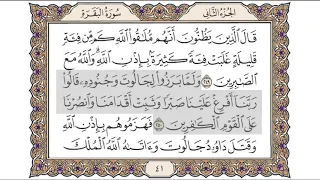 الجزء الثاني
سورة البقرة
قَالَ الَّذِينَ يَظُنُّونَ أَنَّهُم مُّلَٰقُوا اللَّهِ كَم مِّن فِئَةٍ
قَلِيلَةٍ غَلَبَتْ فِئَةً كَثِيرَةً بِإِذْنِ اللَّهِ وَاللَّهُ مَعَ
الصَّٰبِرِينَ ٢٤٩ وَلَمَّا بَرَزُوا لِجَالُوتَ وَجُنُودِهِ قَالُوا
رَبَّنَا أَفْرِغْ عَلَيْنَا صَبْرًا وَثَبِّتْ أَقْدَامَنَا وَانصُرْنَا
عَلَى الْقَوْمِ الْكَٰفِرِينَ ٢٥٠ فَهَزَمُوهُم بِإِذْنِ اللَّهِ
وَقَتَلَ دَاوُدُ جَالُوتَ وَءَاتَىٰهُ اللَّهُ الْمُلْكَ
٤١